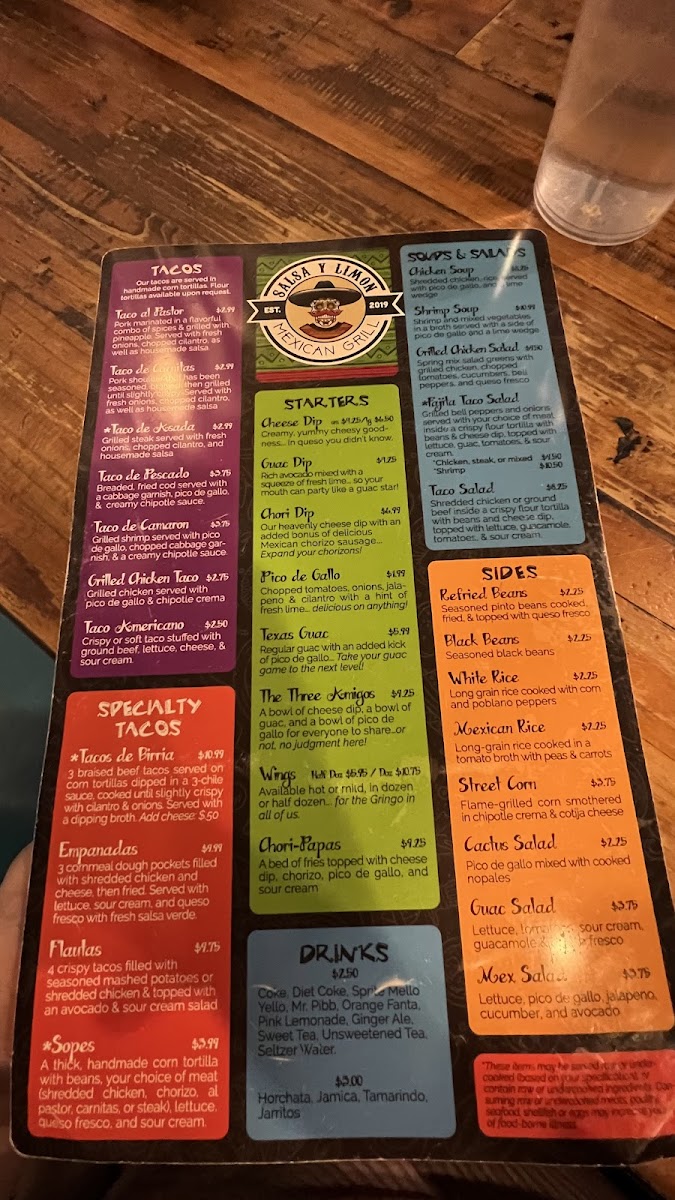 TACOS
Our tacos are served in
handmade corn tortillas. Flour
tortillas available upon request.
Taco al Pastor $2.99
Pork marinated in a flavorful
combo of spices & grilled with
pineapple. Served with fresh
onions, chopped cilantro, as
well as housemade salsa
Taco de Carnitas $2.99
Pork shoulder has been
seasoned, then grilled
until slightly Served with
fresh onions, chopped cilantro,
as well as housemade salsa
*Taco de Asada $2.99
Grilled steak served with fresh
onions, chopped cilantro, and
housemade salsa
Taco de Pescado $3.75
Breaded, fried cod served with
a cabbage garnish, pico de gallo,
& creamy chipotle sauce.
Taco de Camaron $3.75
Grilled shrimp served with pico
de gallo, chopped cabbage gar-
nish, & a creamy chipotle sauce.
Grilled Chicken Taco $2.75
Grilled chicken served with
pico de gallo & chipotle crema
Taco Americano $2.50
Crispy or soft taco stuffed with
ground beef, lettuce, cheese, &
sour cream.
SPECIALTY
TACOS
*Tacos de Birria $10.99
3 braised beef tacos served on
corn tortillas dipped in a 3-chile
sauce, cooked until slightly crispy
with cilantro & onions. Served with
a dipping broth. Add cheese: $.50
Empanadas $9.99
3 cornmeal dough pockets filled
with shredded chicken and
cheese, then fried. Served with
lettuce, sour cream, and queso
fresco with fresh salsa verde.
Flautas $9.75
4 crispy tacos filled with
seasoned mashed potatoes or
shredded chicken & topped with
an avocado & sour cream salad
*Sopes $3.99
A thick, handmade corn tortilla
with beans, your choice of meat
(shredded chicken, chorizo, al
pastor, carnitas, or steak), lettuce,
queso fresco, and sour cream.
SALSA Y LIMON
EST. 2019
MEXICAN GRILL
STARTERS
Cheese Dip sm $4.25/lg $6.50
Creamy, yummy cheesy good-
ness... in queso you didn't know.
Guac Dip $4.25
Rich avocado mixed with a
squeeze of fresh lime... so your
mouth can party like a guac star!
Chori Dip $6.99
Our heavenly cheese dip with an
added bonus of delicious
Mexican chorizo sausage...
Expand your chorizons!
Pico de Gallo $1.99
Chopped tomatoes, onions, jala-
peno & cilantro with a hint of
fresh lime... delicious on anything!
Texas Guac $5.99
Regular guac with an added kick
of pico de gallo... Take your guac
game to the next level!
The Three Amigos $9.25
A bowl of cheese dip, a bowl of
guac, and a bowl of pico de
gallo for everyone to share..or
not, no judgment here!
Wings Half Doz $5.95 / Doz $10.75
Available hot or mild, in dozen
or half dozen... for the Gringo in
all of us.
Chori-Papas $9.25
A bed of fries topped with cheese
dip, chorizo, pico de gallo, and
sour cream
DRINKS
$2.50
Coke, Diet Coke, Sprite Mello
Yello, Mr. Pibb, Orange Fanta,
Pink Lemonade, Ginger Ale,
Sweet Tea, Unsweetened Tea,
Seltzer Water.
$3.00
Horchata, Jamica, Tamarindo,
Jarritos
SOUPS & SALADS
Chicken Soup
Shredded chicken, rice, served
with pico de gallo, and a lime
wedge
Shrimp Soup $10.99
Shrimp and mixed vegetables
in a broth served with a side of
pico de gallo and a lime wedge
Grilled Chicken Salad
Spring mix salad greens with
grilled chicken, chopped
tomatoes, cucumbers, bell
peppers, and queso fresco
*Fajita Taco Salad
Grilled bell peppers and onions
served with your choice of meat
inside a crispy flour tortilla with
beans & cheese dip, topped with
lettuce, guac, tomatoes, & sour
cream.
*Chicken, steak, or mixed $9.50
*Shrimp $10.50
Taco Salad $8.25
Shredded chicken or ground
beef inside a crispy flour tortilla
with beans and cheese dip,
topped with lettuce, guacamole,
tomatoes, & sour cream.
SIDES
Refried Beans $2.25
Seasoned pinto beans cooked,
fried, & topped with queso fresco
Black Beans $2.25
Seasoned black beans
White Rice $2.25
Long grain rice cooked with corn
and poblano peppers
Mexican Rice $2.25
Long-grain rice cooked in a
tomato broth with peas & carrots
Street Corn $3.75
Flame-grilled corn smothered
in chipotle crema & cotija cheese
Cactus Salad $2.25
Pico de gallo mixed with cooked
nopales
Guac Salad $3.75
Lettuce, sour cream,
guacamole & fresco
Mex Salad $3.75
Lettuce, pico de gallo, jalapeno,
cucumber, and avocado
*These items may be served raw or under-
cooked (based on your specification), or
contain raw or undercooked ingredients. Con-
suming raw or undercooked meats, poultry,
seafood, shellfish or eggs may increase your
of food-borne illness.